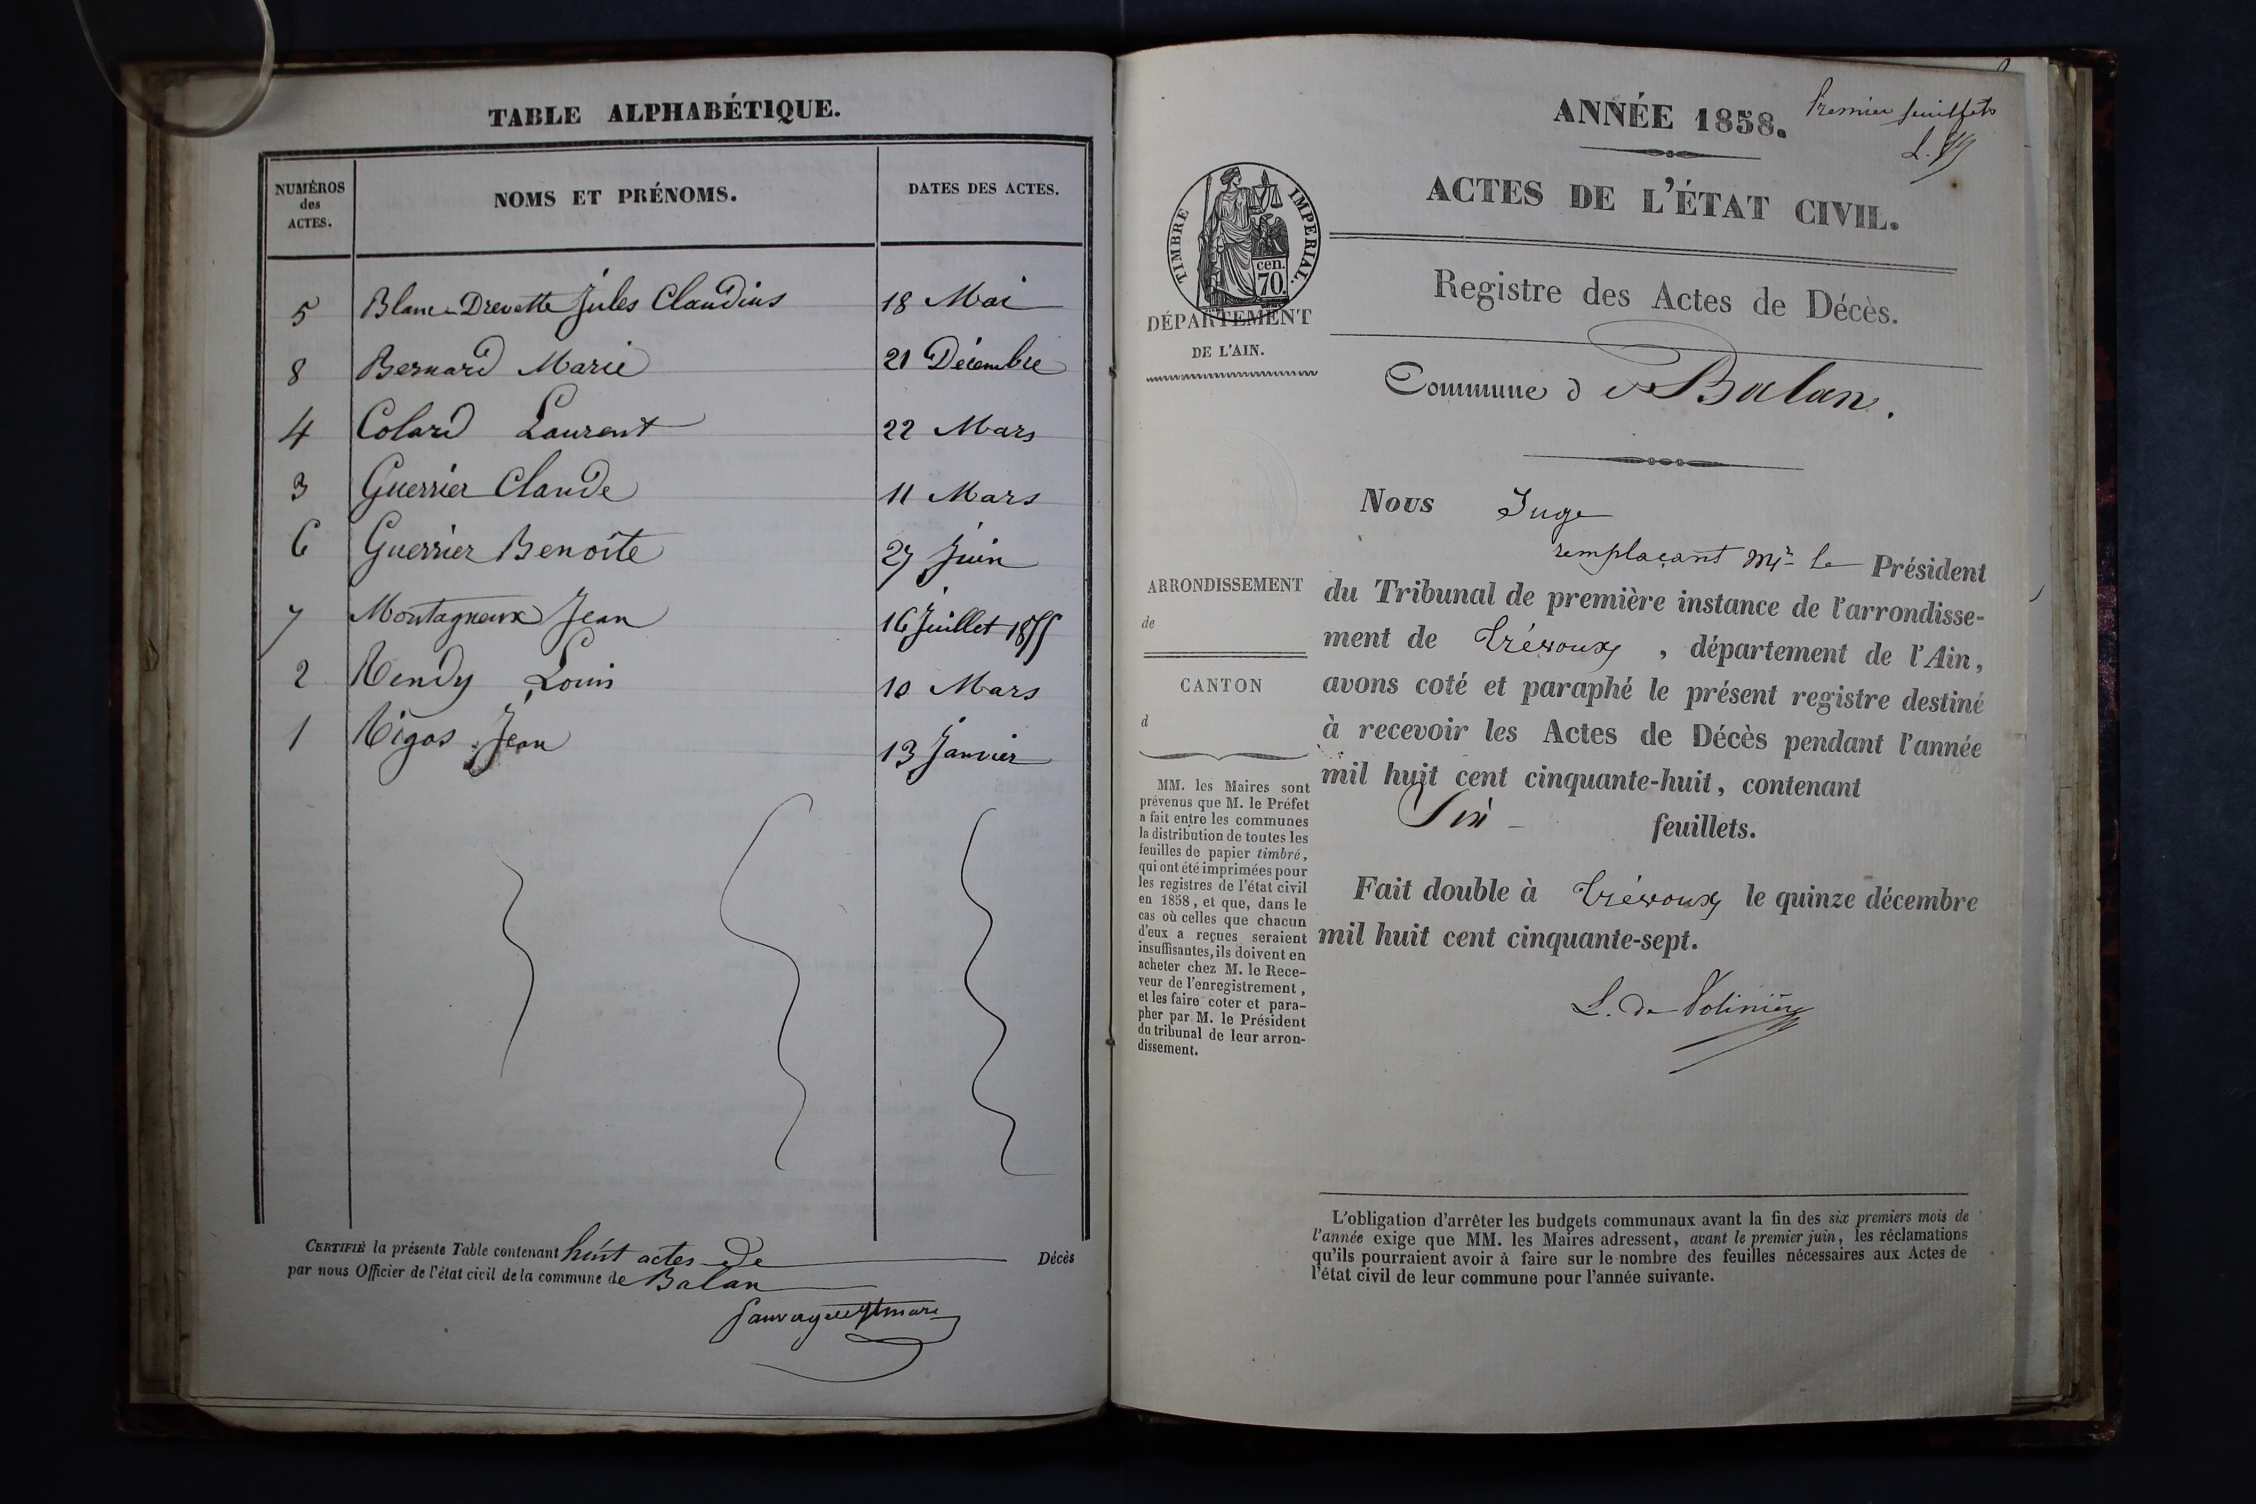 TABLE ALPHABÉTIQUE.
NUMÉROS des ACTES. NOMS ET PRÉNOMS. DATES DES ACTES.
5 Blanc-Drevette Jules Claudius 18 Mai
8 Bernard Marie 21 Décembre
4 Colard Laurent 22 Mars
3 Guerrier Claude 11 Mars
6 Guerrier Benoîte 27 Juin
7 Montagneux Jean 16 Juillet 1855
2 Rendy Louis 10 Mars
1 Rigos Jean 13 Janvier
CERTIFIÉ la présente Table contenant huit actes de Décès
par nous Officier de l'état civil de la commune de Balan
ANNÉE 1858.
Premier feuillets
ACTES DE L'ÉTAT CIVIL.
TIMBRE IMPERIAL.
cen.
70.
Registre des Actes de Décès.
DÉPARTEMENT
DE L'AIN.
Commune de Balan.
Nous Juge
remplaçant Mr le Président
du Tribunal de première instance de l'arrondisse-
ment de Trévoux, département de l'Ain,
avons coté et paraphé le présent registre destiné
à recevoir les Actes de Décès pendant l'année
mil huit cent cinquante-huit, contenant
Six feuillets.
Fait double à Trévoux le quinze décembre
mil huit cent cinquante-sept.
L. de
ARRONDISSEMENT
de
CANTON
d
MM. les Maires sont
prévenus que M. le Préfet
a fait entre les communes
la distribution de toutes les
feuilles de papier timbré,
qui ont été imprimées pour
les registres de l'état civil
en 1858, et que, dans le
cas où celles que chacun
d'eux a reçues seraient
insuffisantes, ils doivent en
acheter chez M. le Rece-
veur de l'enregistrement,
et les faire coter et para-
pher par M. le Président
du tribunal de leur arron-
dissement.
L'obligation d'arrêter les budgets communaux avant la fin des six premiers mois de
l'année exige que MM. les Maires adressent, avant le premier juin, les réclamations
qu'ils pourraient avoir à faire sur le nombre des feuilles nécessaires aux Actes de
l'état civil de leur commune pour l'année suivante.